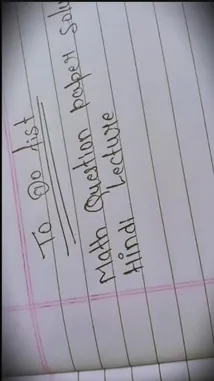 To Do list
Math Question paper
Hindi Lecture